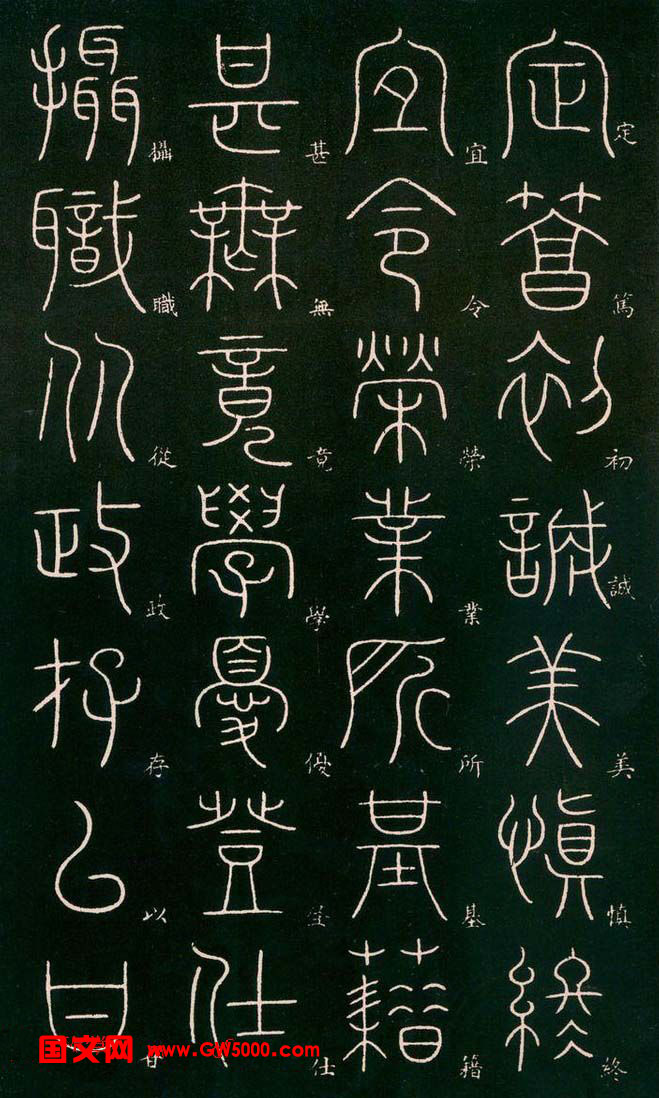 定篤初誠美慎終
宜令榮業所基籍
甚無竟學優登仕
攝職從政存以甘
国文网 www.GW5000.com